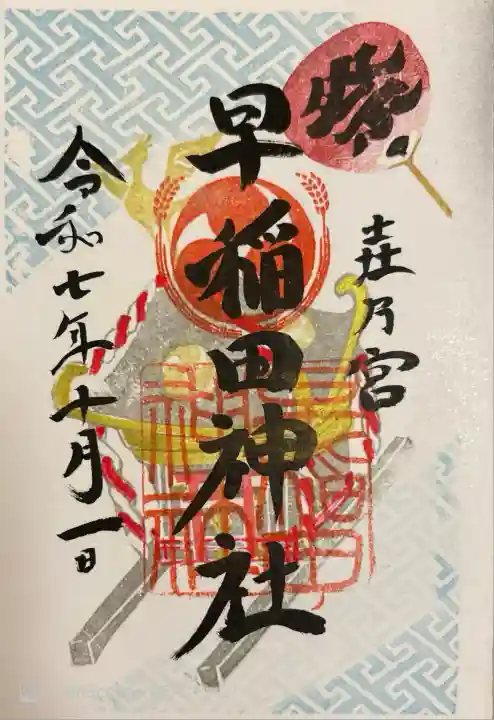 祭
乃宮
早稲田神社
令和七年十月一日